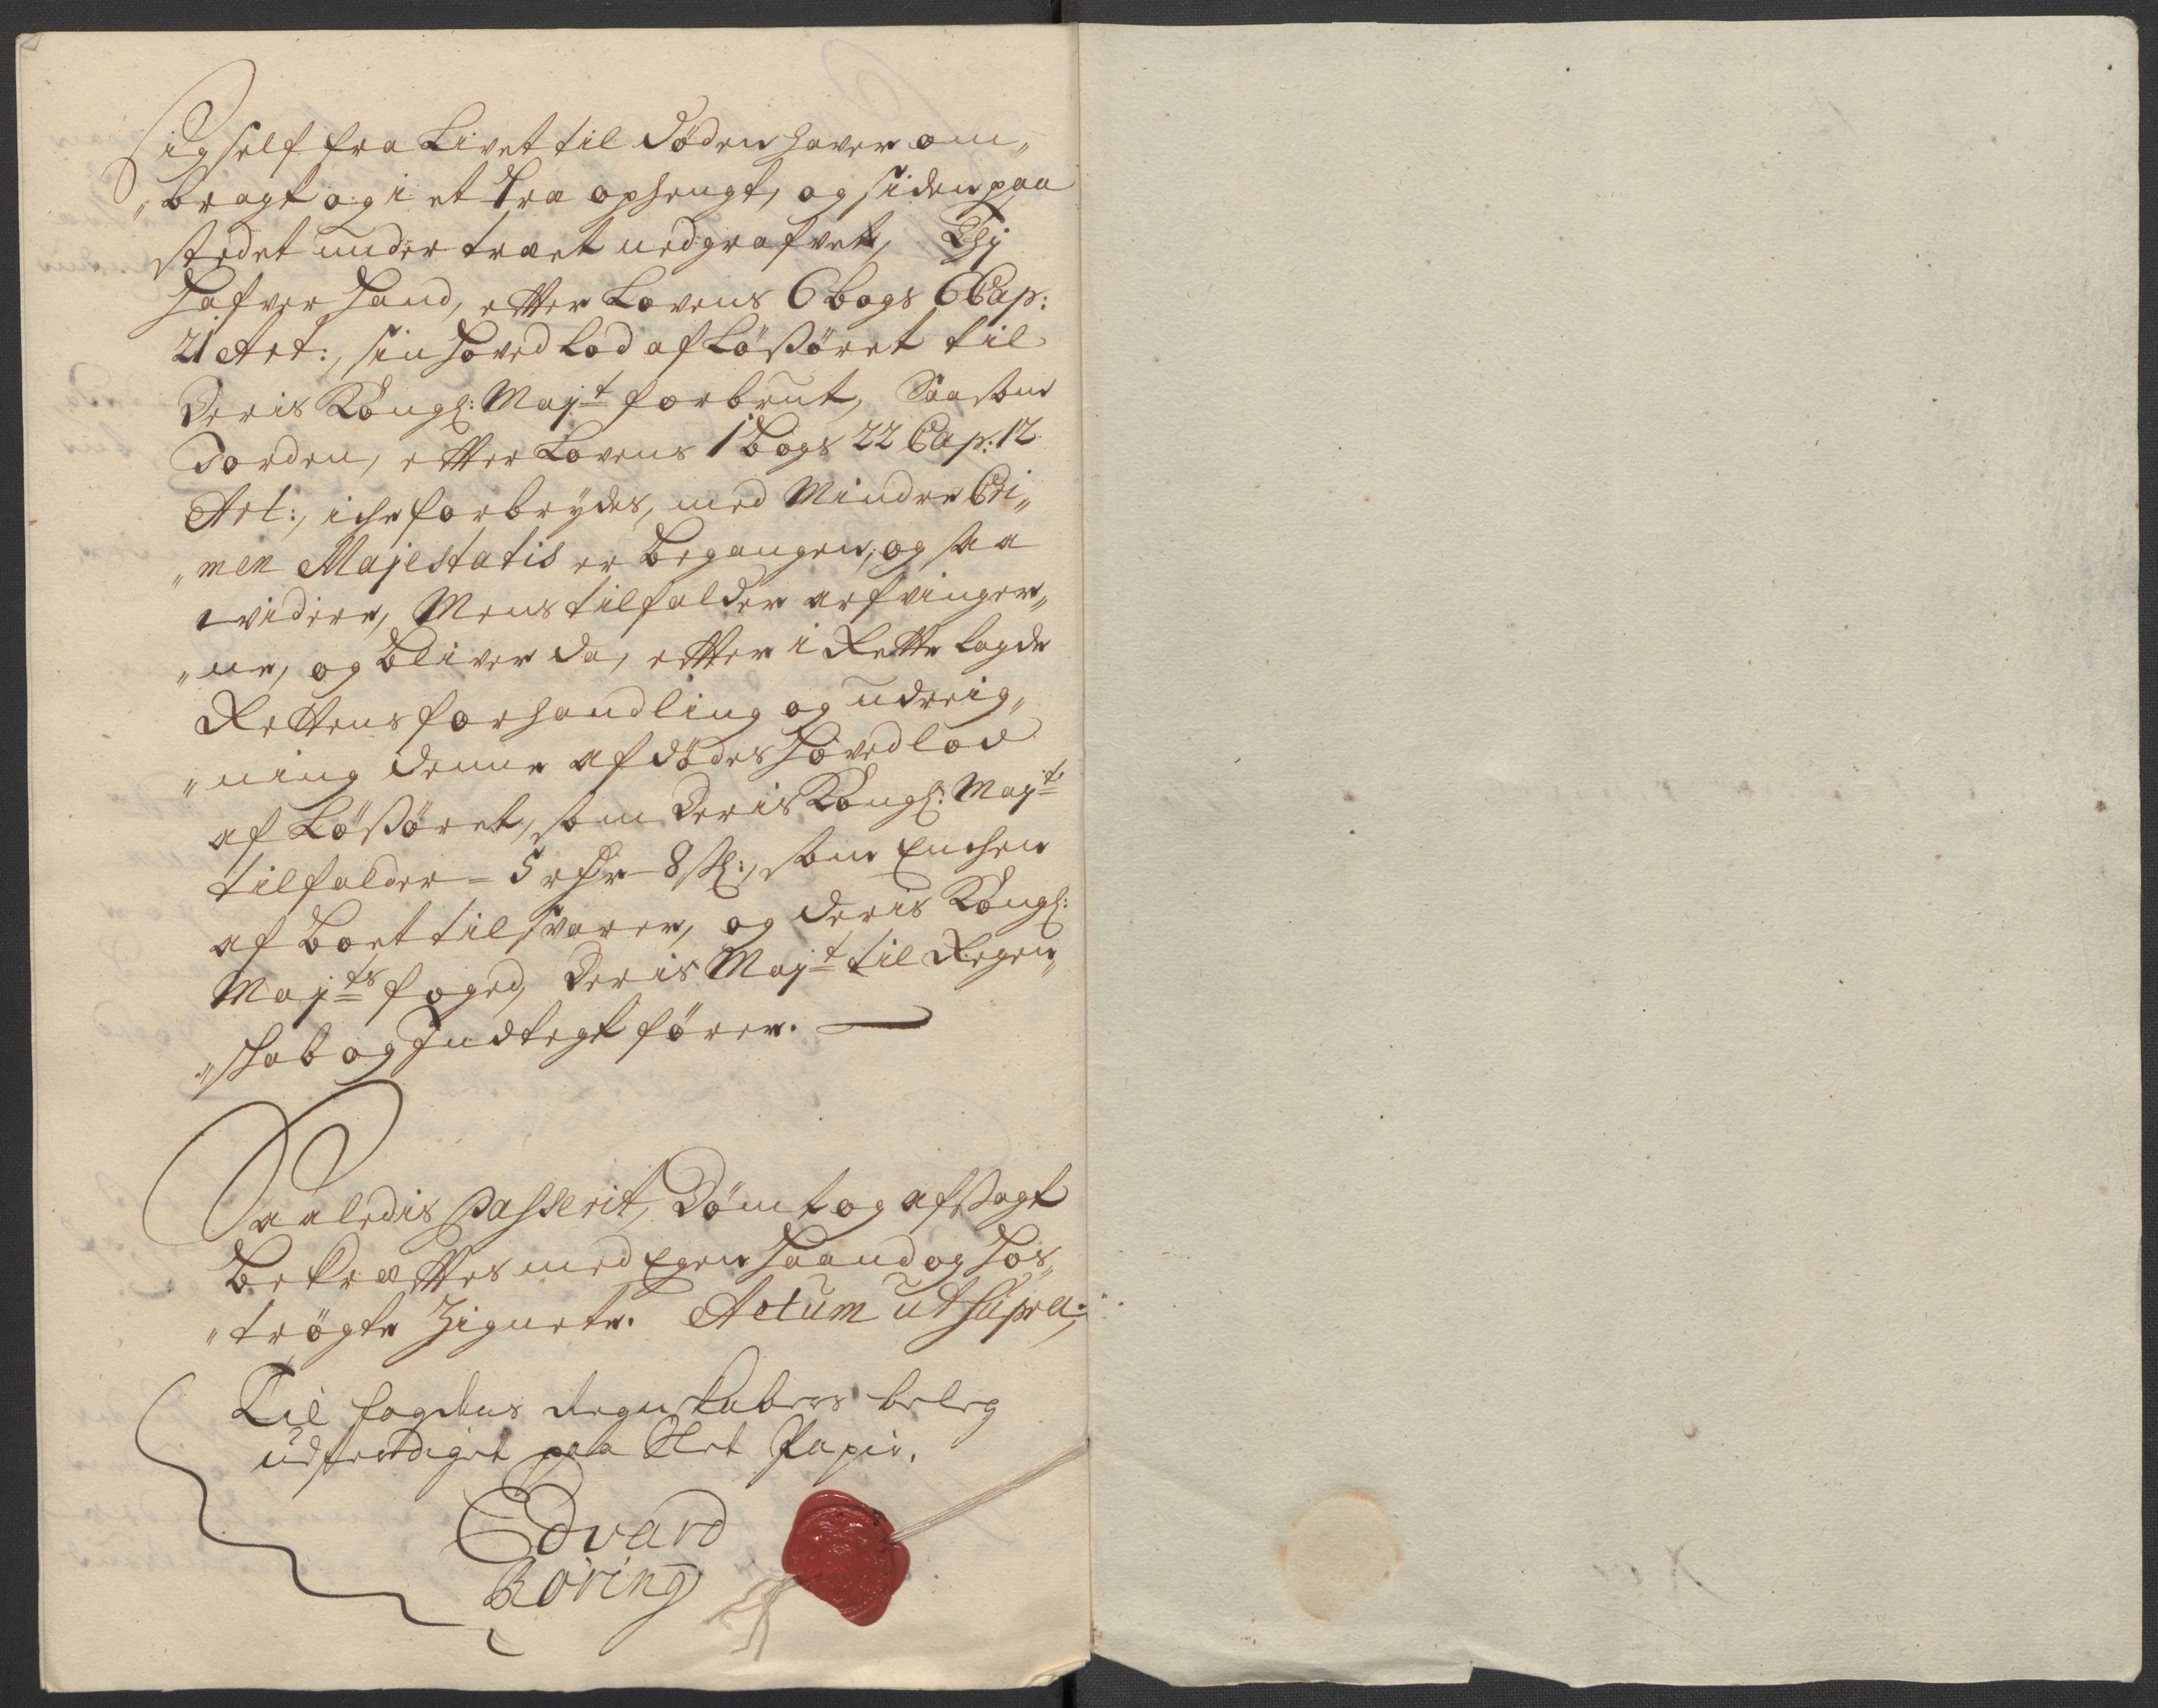 Sig self fra Livet til döden haver om„
„bragt og i et Træ ophengt, og siden paa
stedet under træet nedgrafvet, Thj
Hafver hand, efter Lovens 6 bogs 6 Cap:
21 Art:, sin hoved lod af Lössöret til
Deris Kongl: Majt forbrut, Saasom
Jorden, efter Lovens 1 bogs 22 Cap: 12
Art:, iche forbrydes, med Mindre Cri„
„men Majestatis er begangen, og saa
widere, Mens tilfalder arfvinger„
„ne, og bliver da, efter i Rette lagde
Rettens forhandling og udreig„
„ning denne afdödes hovedlod
af Lössöret, som Deris Kongl: Majt
tilfalder = 5 rdr 8 sl:, som Enchen
af boet tilsvarer, og deris Kongl:
Majts foged, Deris Majt til Regen„
„skab og Indtegt förer.
Saaledis Passerit, Dömt og afsagt
Bekræfftes med Egen Haand og hos„
„trögte Zignete. Actum ut supra.
Til fogdens Regnskabers beleg
udferdiget paa slet Papir.
Edvard
Röring